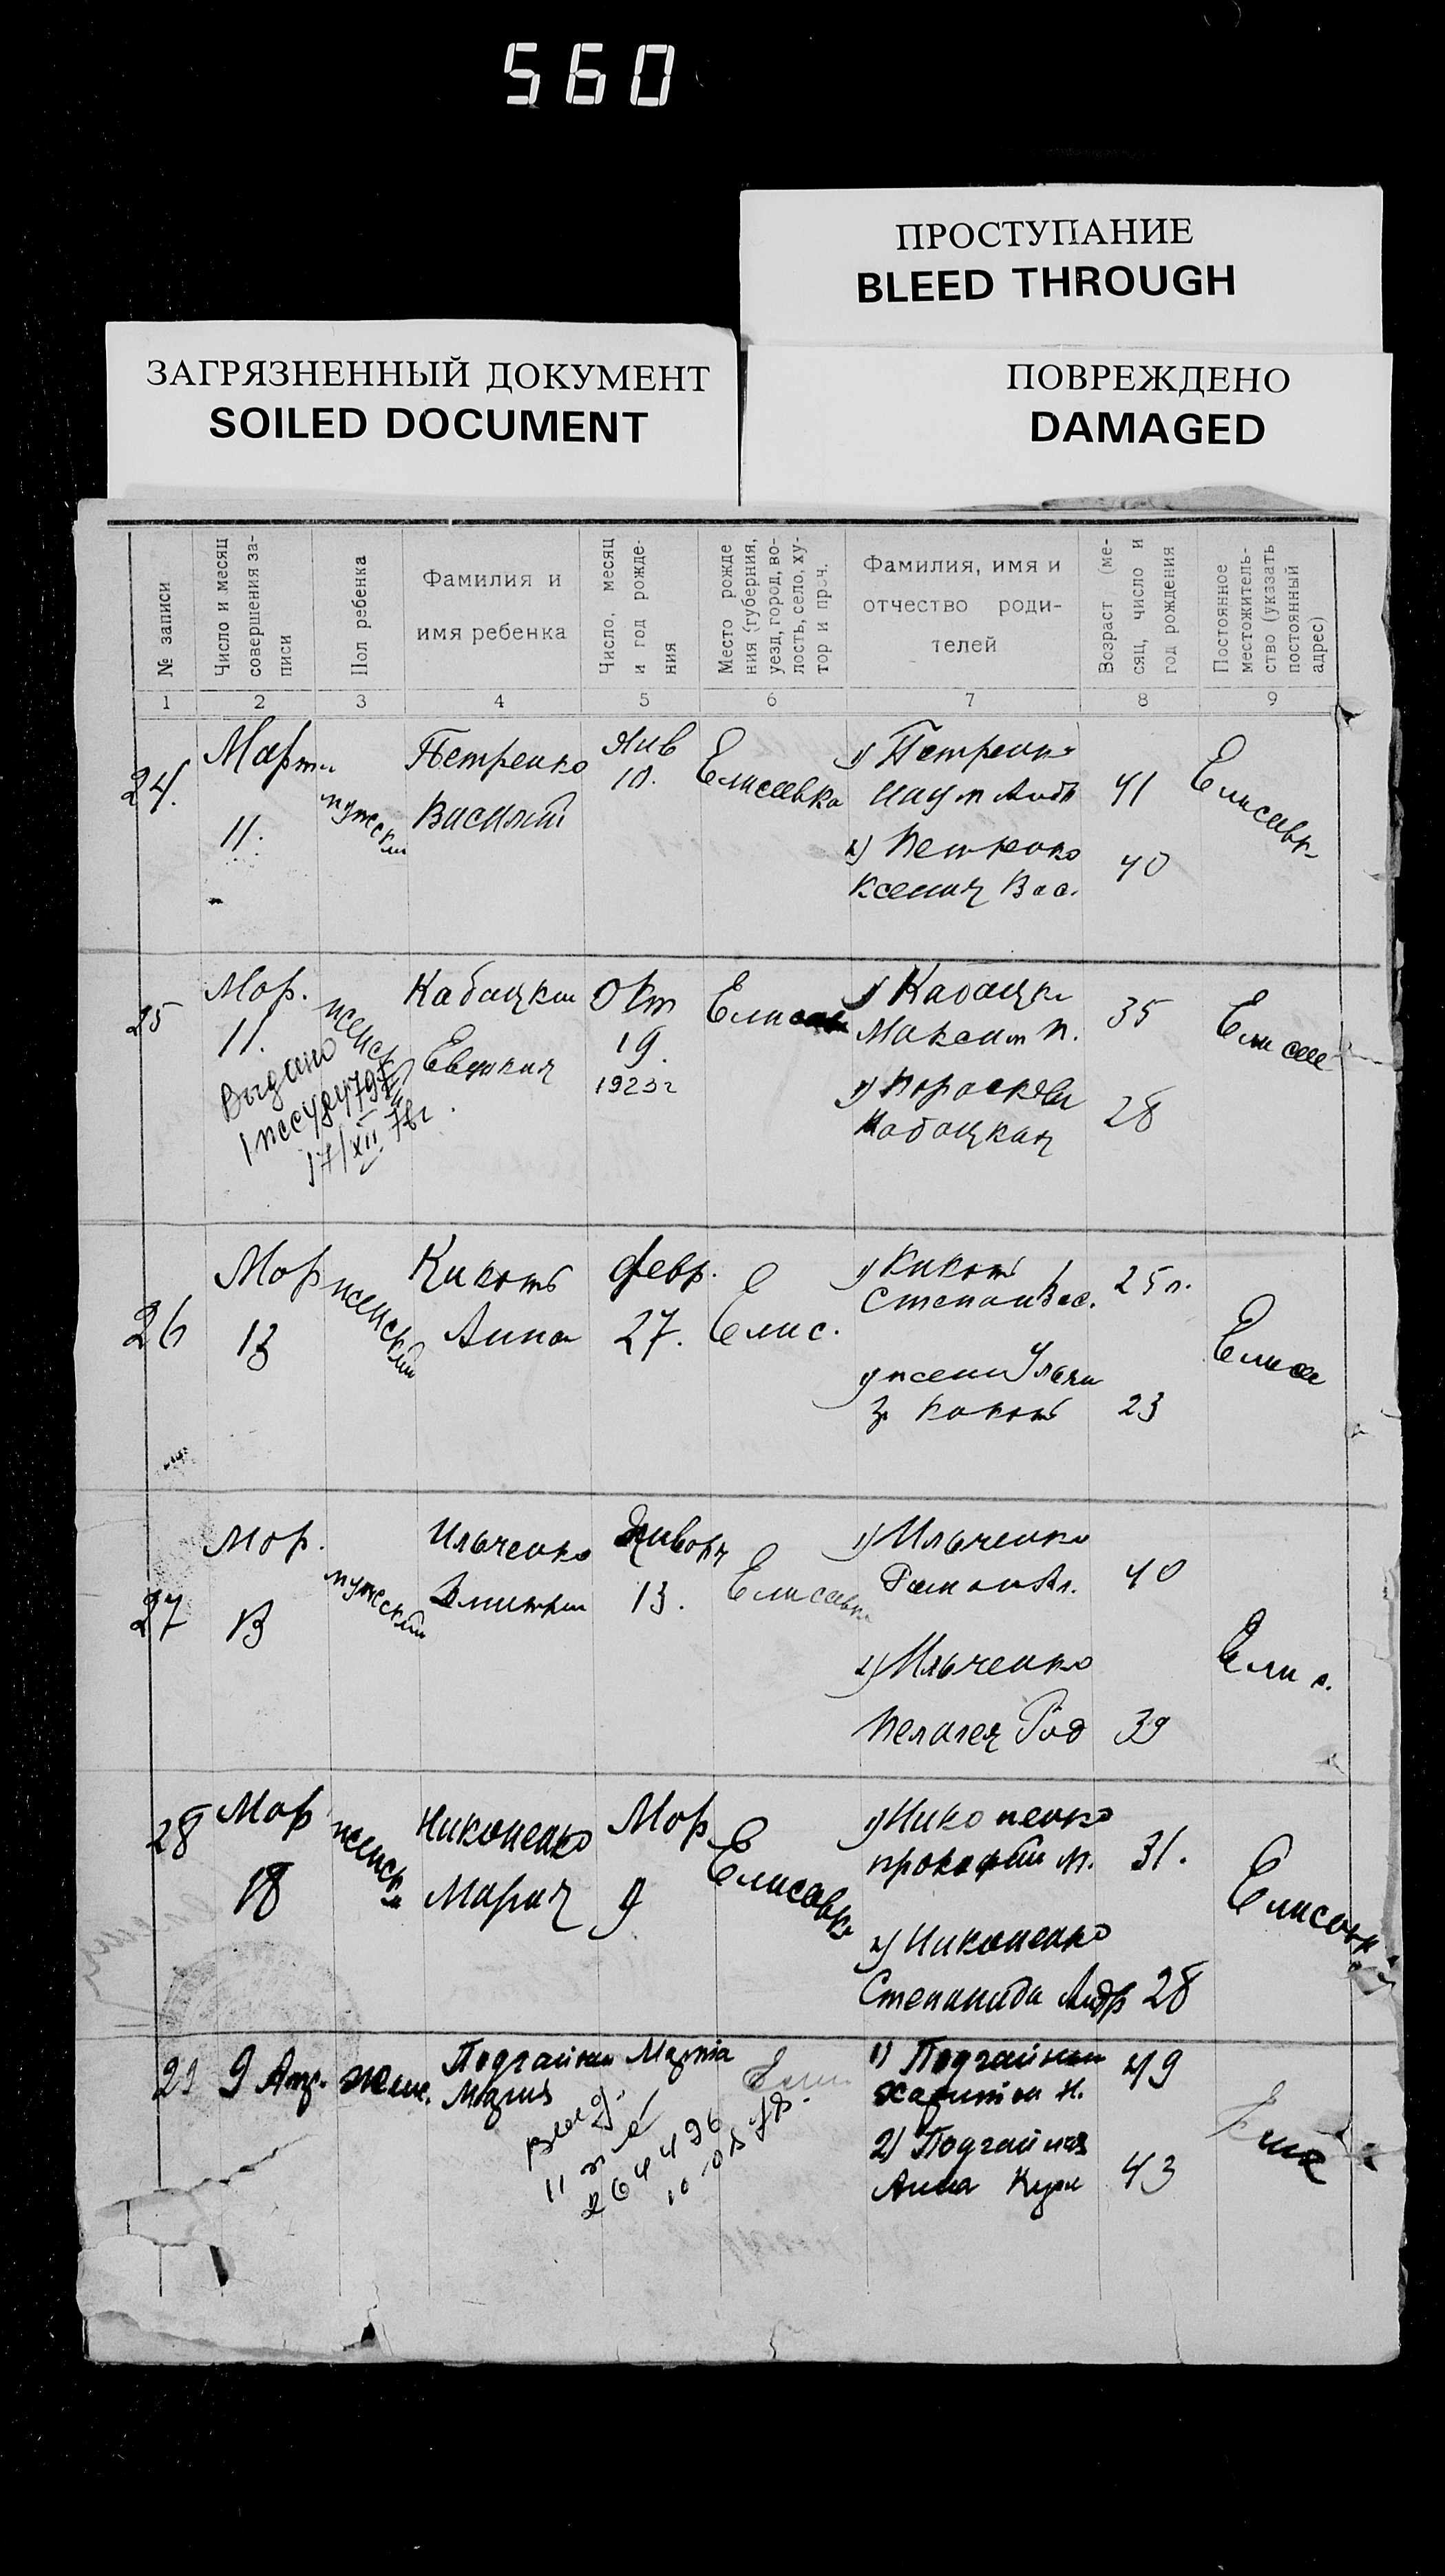 560
ПРОСТУПАНИЕ
BLEED THROUGH
ЗАГРЯЗНЕННЫЙ ДОКУМЕНТ
SOILED DOCUMENT
ПОВРЕЖДЕНО
DAMAGED
№ записи
Число и месяц
совершения за-
писи
Пол ребенка
Фамилия и
имя ребенка
Число, месяц
и год рожде-
ния
Место рожде
ния (губерния,
уезд, город, во-
лость, село, ху-
тор и проч.
Фамилия, имя и
отчество роди-
телей
Возраст (ме-
сяц, число и
год рождения
Постоянное
местожитель-
ство (указать
постоянный
адрес)
1 2 3 4 5 6 7 8 9
24.
Марта
11.
мужески
Петренко
Василий
Янв
10.
Елисавка
1) Петренко
Наум
41
2) Петренко
Ксения Вас.
40
25
Мар.
11.
Выдано
17/XII 78г.
женск
Кабацкая
Евдокия
Окт
19.
1923 г
1) Кабацки
Максим П.
35
Кабацкая
28
26
Мар
13
женский
Кикоть
Анна
февр.
27.
Елис.
1) Кикоть
Степан Вас.
25 л.
23
27
Мар.
13
мужеский
Ильченко
Дмитрии
Январ
13.
Елисавк
1) Ильченко
40
2) Ильченко
Пелагея Род
39
Елис.
28
Мар
18
женск
Никоненко
Мария
Мар
9
Елисавка
1) Никоненко
Прокофий М.
31.
2) Никоненко
Степанида Андр
28
29
9 Апр.
женс.
Подгайная
Мария
Марта
1) Подгайный
Харитон Н.
49
2) Подгайная
Анна
43